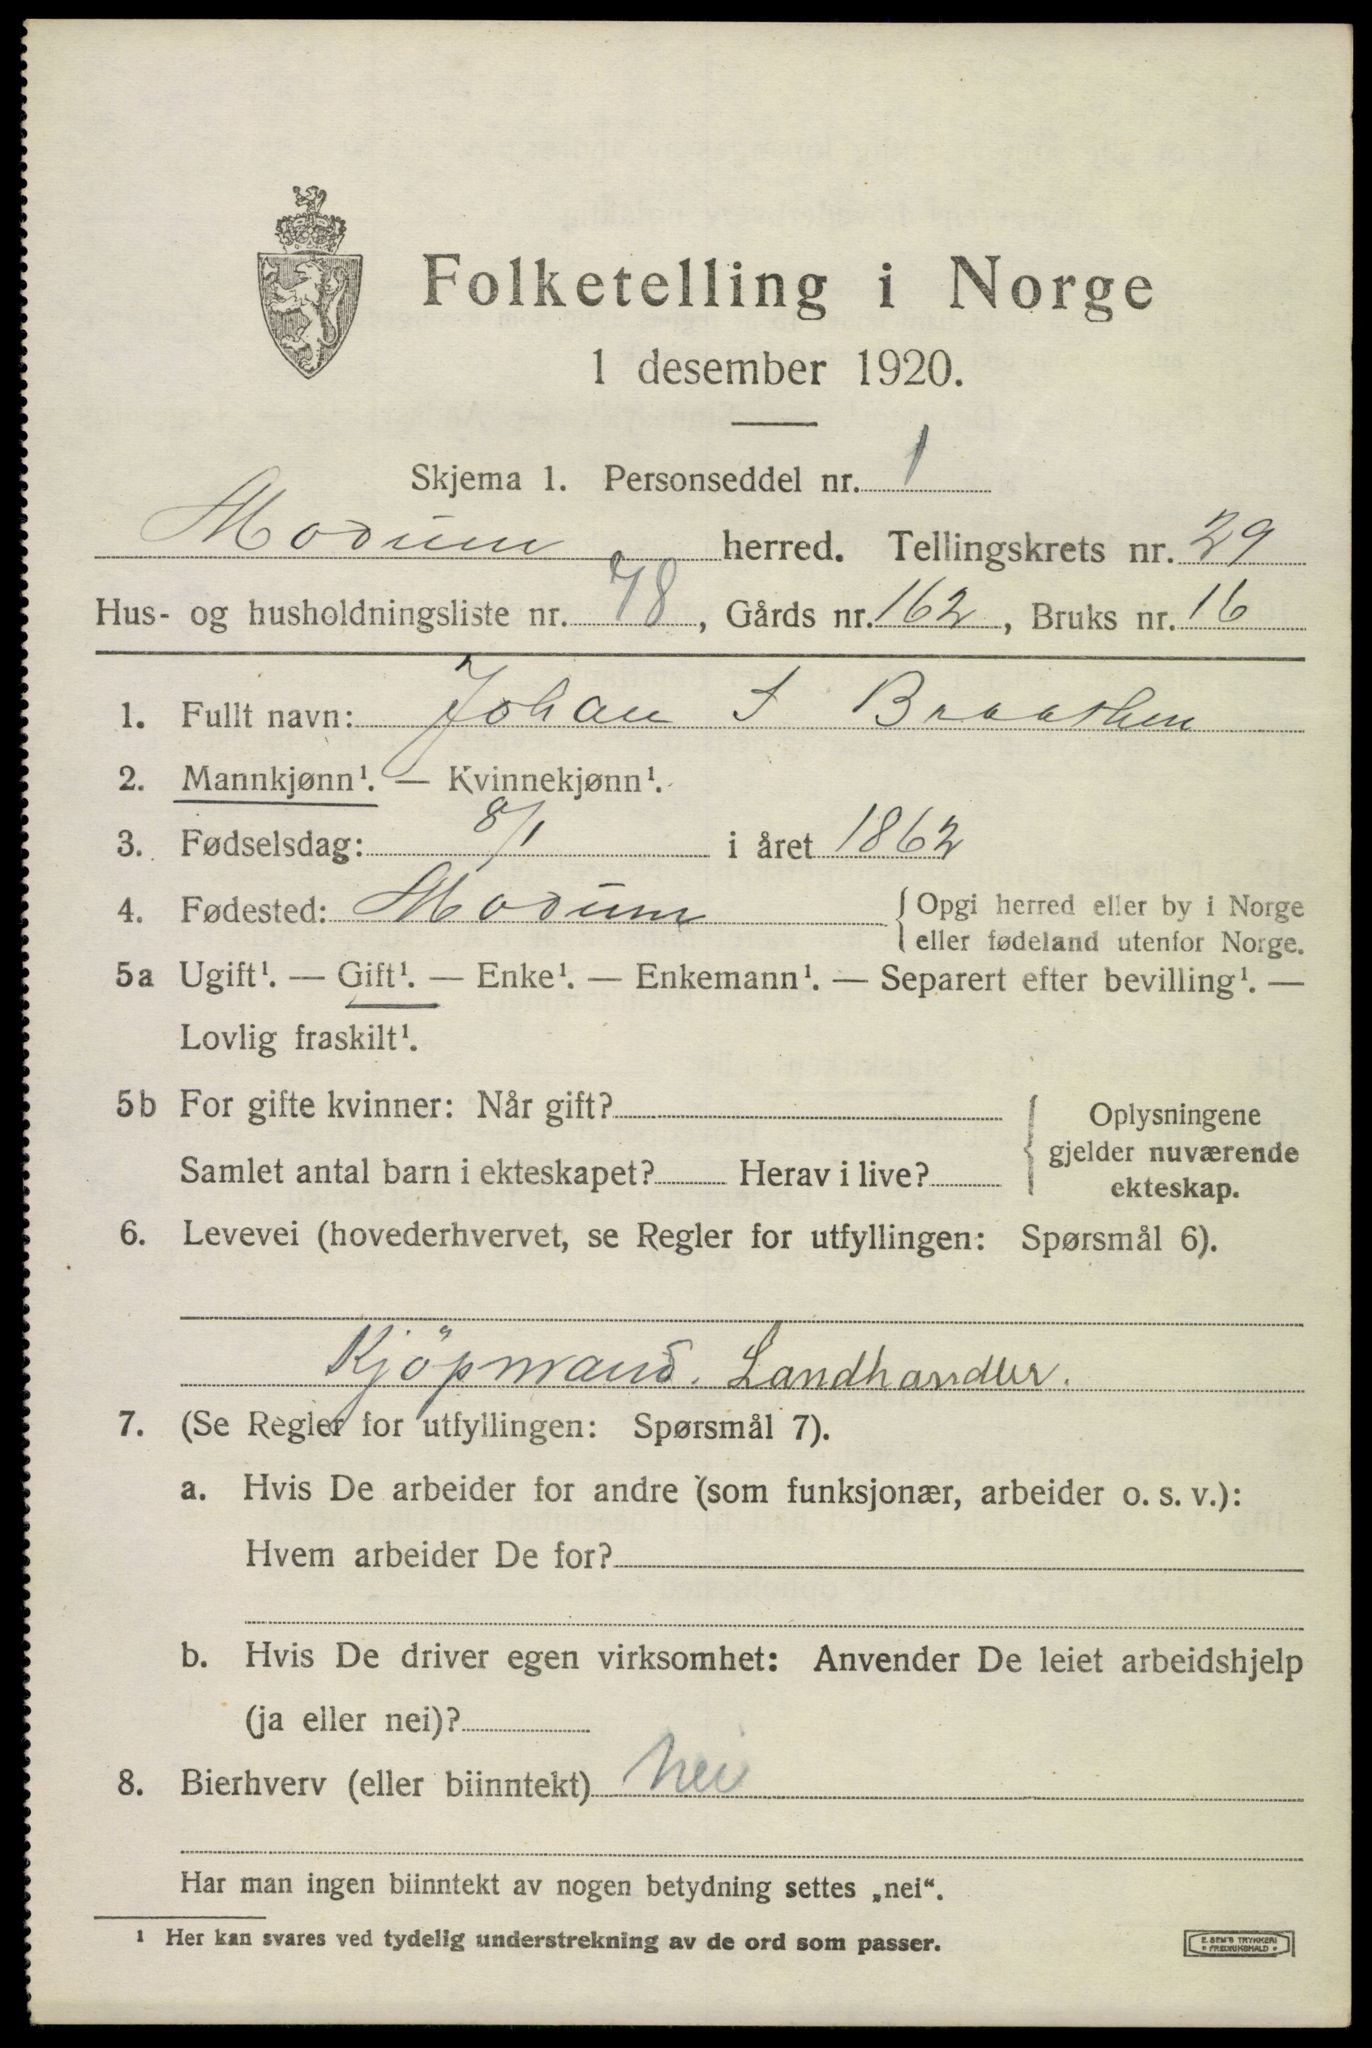 Folketelling i Norge
1 desember 1920.
Skjema 1. Personseddel nr. 1
Modum herred. Tellingskrets nr. 29
Hus- og husholdningsliste nr. 78, Gårds nr. 162, Bruks nr. 16
1. Fullt navn: Johan S Braathen
2. Mannkjønn¹. — Kvinnekjønn¹.
3. Fødselsdag: 8/1 i året 1862
4. Fødested: Modum { Opgi herred eller by i Norge
eller fødeland utenfor Norge.
5a Ugift¹. — Gift¹. — Enke¹. — Enkemann¹. — Separert efter bevilling¹. —
Lovlig fraskilt¹.
5b For gifte kvinner: Når gift?
Samlet antal barn i ekteskapet? Herav i live?
{ Oplysningene
gjelder nuværende
ekteskap.
6. Levevei (hovederhvervet, se Regler for utfyllingen: Spørsmål 6).
Kjöpmand. Landhandler.
7. (Se Regler for utfyllingen: Spørsmål 7).
a. Hvis De arbeider for andre (som funksjonær, arbeider o. s. v.):
Hvem arbeider De for?
b. Hvis De driver egen virksomhet: Anvender De leiet arbeidshjelp
(ja eller nei)?
8. Bierhverv (eller biinntekt) Nei
Har man ingen biinntekt av nogen betydning settes „nei“.
¹ Her kan svares ved tydelig understrekning av de ord som passer.
E. SEM'S TRYKKERI
FREDRIKSHALD